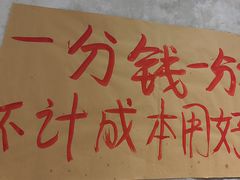 一分钱一分
不计成本用好